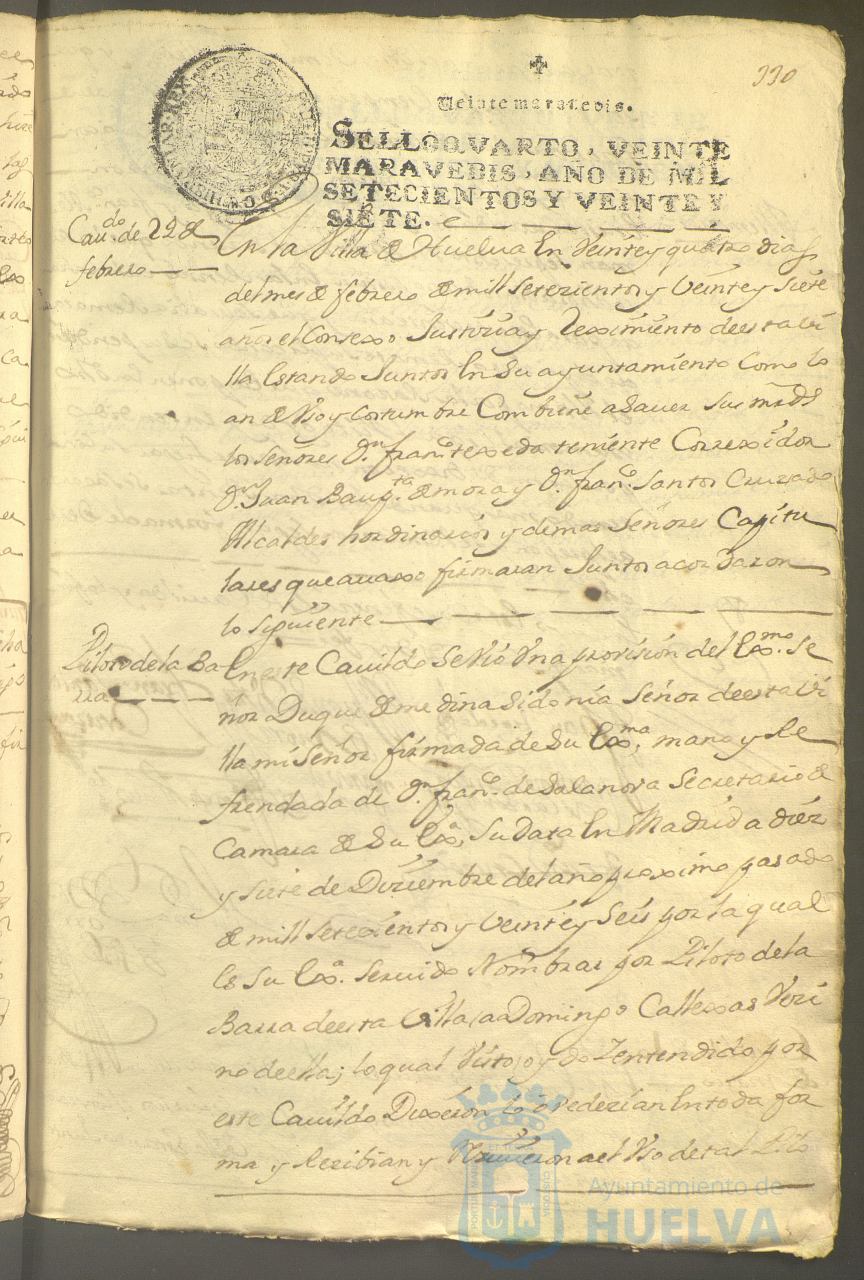 330
Veinte maravedis.
SELLO QVARTO, VEINTE
MARAVEDIS, AÑO DE MIL
SETECIENTOS Y VEINTE Y
SIETE.
Cau.do de 24 de
febrero
En la Villa de Huelva En Veinte y quatro dias
del mes de febrero de mill Setezientos y Veinte y Siete
años el Consexo Justizia y Reximiento de esta Vi
lla Estando Juntos En Su ayuntamiento Como lo
an de Uso y costumbre Combiene a Sauer Sus mrds
los señores Dn. fran.co texeda teniente Correxidor
Dn. Juan Baup.ta de mora y Dn. fran.co Santos Cruzado
Alcaldes hordinarios y demas Señores Capitu
lares que auaxo firmaran Juntos acordaron
lo siguiente
Piloto de la Ba
rra
En este Cauildo Se Vio Una prouision del Exmo. Se
ñor Duque de medina Sidonia Señor de esta Vi
lla mi Señor firmada de Su Exma. mano y Re
frendada de Dn. fran.co de Salanova Secretario de
Camara de Su Exa. Su Data En Madrid a diez
y Siete de Diziembre del año proximo pasado
de mill Setezientos y Veinte y Seis por la qual
Es Su Exa. Seruido Nombrar por Piloto de la
Barra de esta Villa a Domingo Callexas Vezi
no de ella; lo qual Visto oydo y entendido por
este Cauildo Dixeron lo obedezian En toda for
ma y Rezibian y Rezivieron al Uso de tal Pilo
Ayuntamiento de
HUELVA